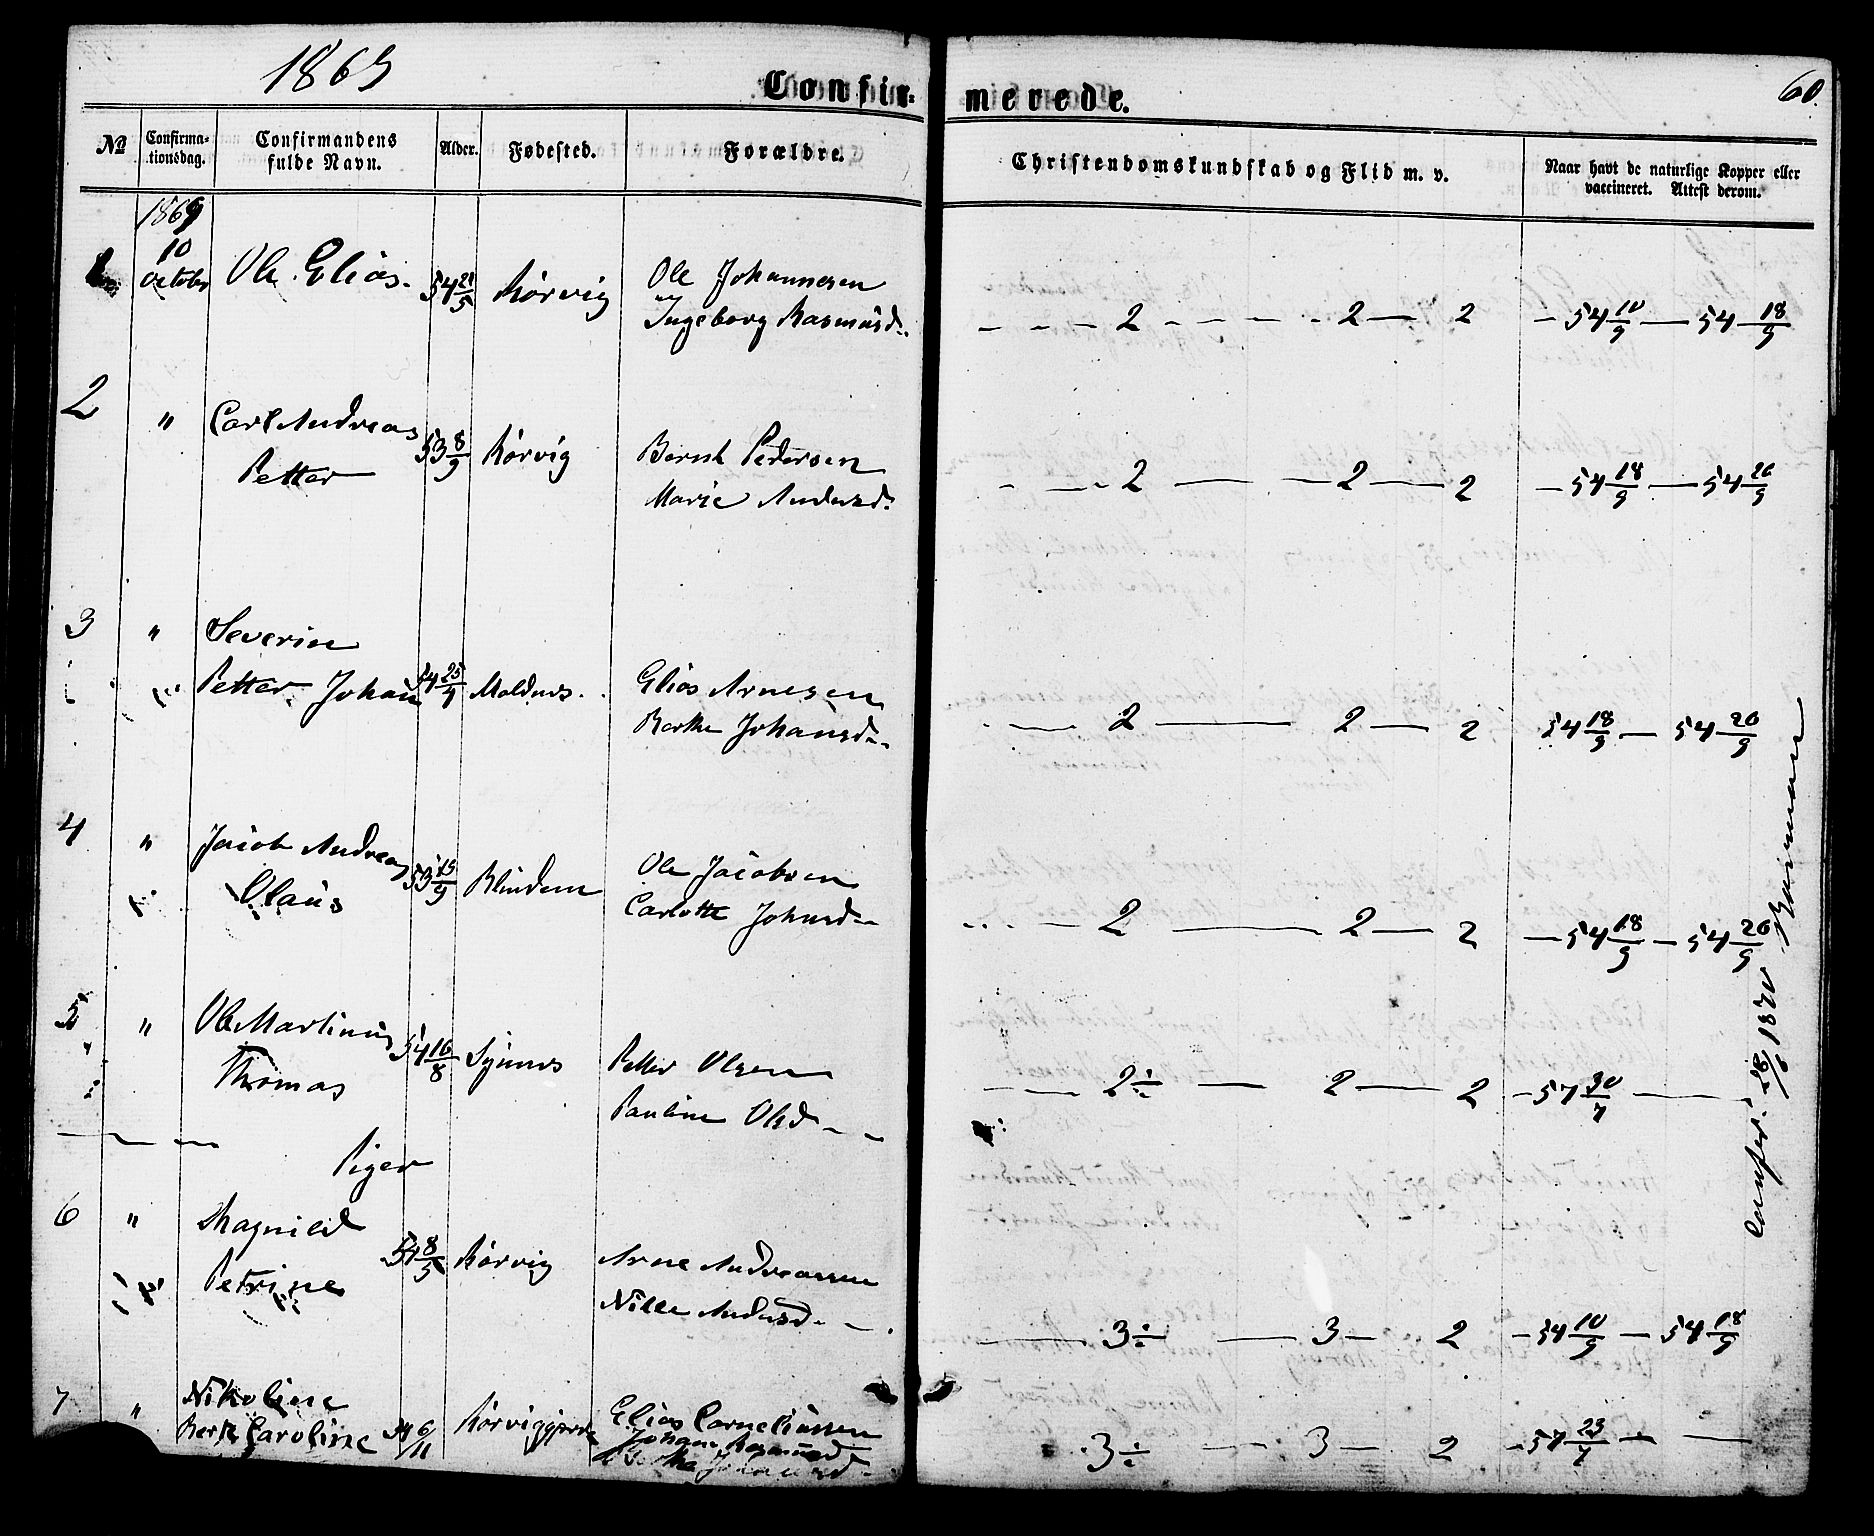 1869
Confir-
merede.
60.
No
Confirma-
tionsdag.
Confirmandens
fulde Navn.
Alder.
Fødested.
Forældre.
Christendomskundskab og Flid m. v.
Naar havt de naturlige Kopper eller
vaccineret. Attest derom.
1869
10
October
1 Ole Elias. 54 21/5 Rørvig Ole Johannesen
Ingeborg Rasmusd.
- - - 2 - - - - - 2 — 2 — 54 10/9 — 54 18/9
2 " Carl Andreas
Petter 53 8/9 Rørvig Bernt Pedersen
Marie Andersd.
— 2 — — 2 — 2 — 54 18/9 — 54 20/9
3 " Severin
Petter Johan 54 25/4 Moldnes. Elias Arnesen
Berthe Johansd.
— 2 — 2 — 2 54 18/9 — 54 20/9
4 " Jacob Andreas
Olaus 53 15/9 Blindem Ole Jacobsen
Carlotte Johnsd.
— 2 — 2 — 2 — 54 18/9 — 54 20/9
5 " Ole Martinus
Thomas 54 16/8 Synnes Petter Olsen
Pauline Olsd.
— 2÷ — 2 — 2 — 57 30/7 —
Piger
6 " Magnild
Petrine 54 8/5 Rørvig Arne Andreassen
Nille Andersd.
— 3÷ — 3 — 2 — 54 10/9 — 54 18/9
7 " Nikoline
Berte Caroline 54 6/11 Rørviggjerde Elias Corneliussen
Johane Rasmusd
Johansd.
3÷ — 3 — 2 — 57 23/7 — —
Confer. 28/6 1870